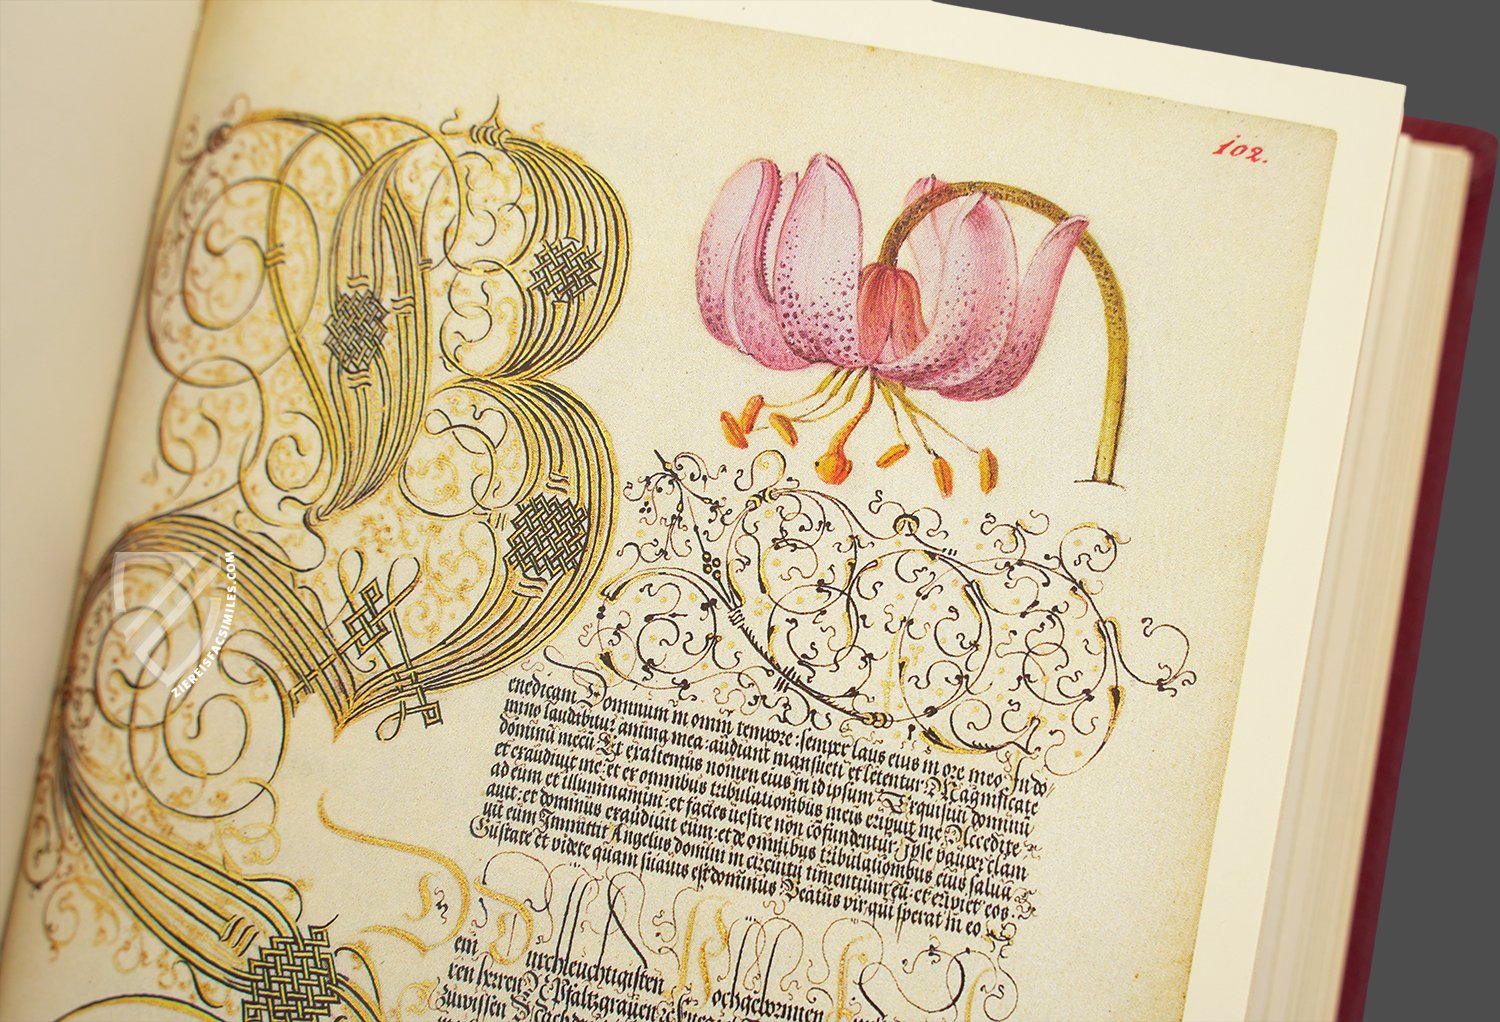 102.
enedicam Dominum in omni tempore: semper laus eius in ore meo. In do
mino laudibitur anima mea: audiant mansueti et letentur. Magnificate
dominū mecū: Et exaltemus nomen eius in idipsum. Exquisiui dominū
et exaudiuit me: et ex omnibus tribulationibus meis eripuit me. Accedite
ad eum et illuminamini: et facies uestre non cōfundentur. Iste pauper clam
auit: et dominus exaudiuit eum: et de omnibus tribulationibus eius salua
uit eum. Immittit Angelus domini in circuitu timentium eū: et eripiet eos.
Gustate et videte quam suauis est dominus Beatus vir qui sperat in eo
em urchleuchtigisten ochgebornnen
ren herren Pfaltzgrauen
Zuwissen
ZIEREISFACSIMILES.COM